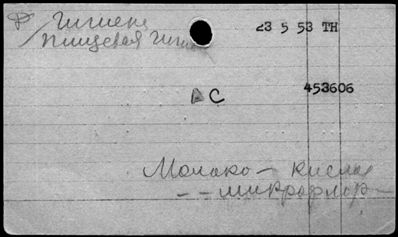 Ф/Гигиена
Пищевая Гиги
23 5 53 TH
А С
453606
Молоко — кисло
— — микрофлор —